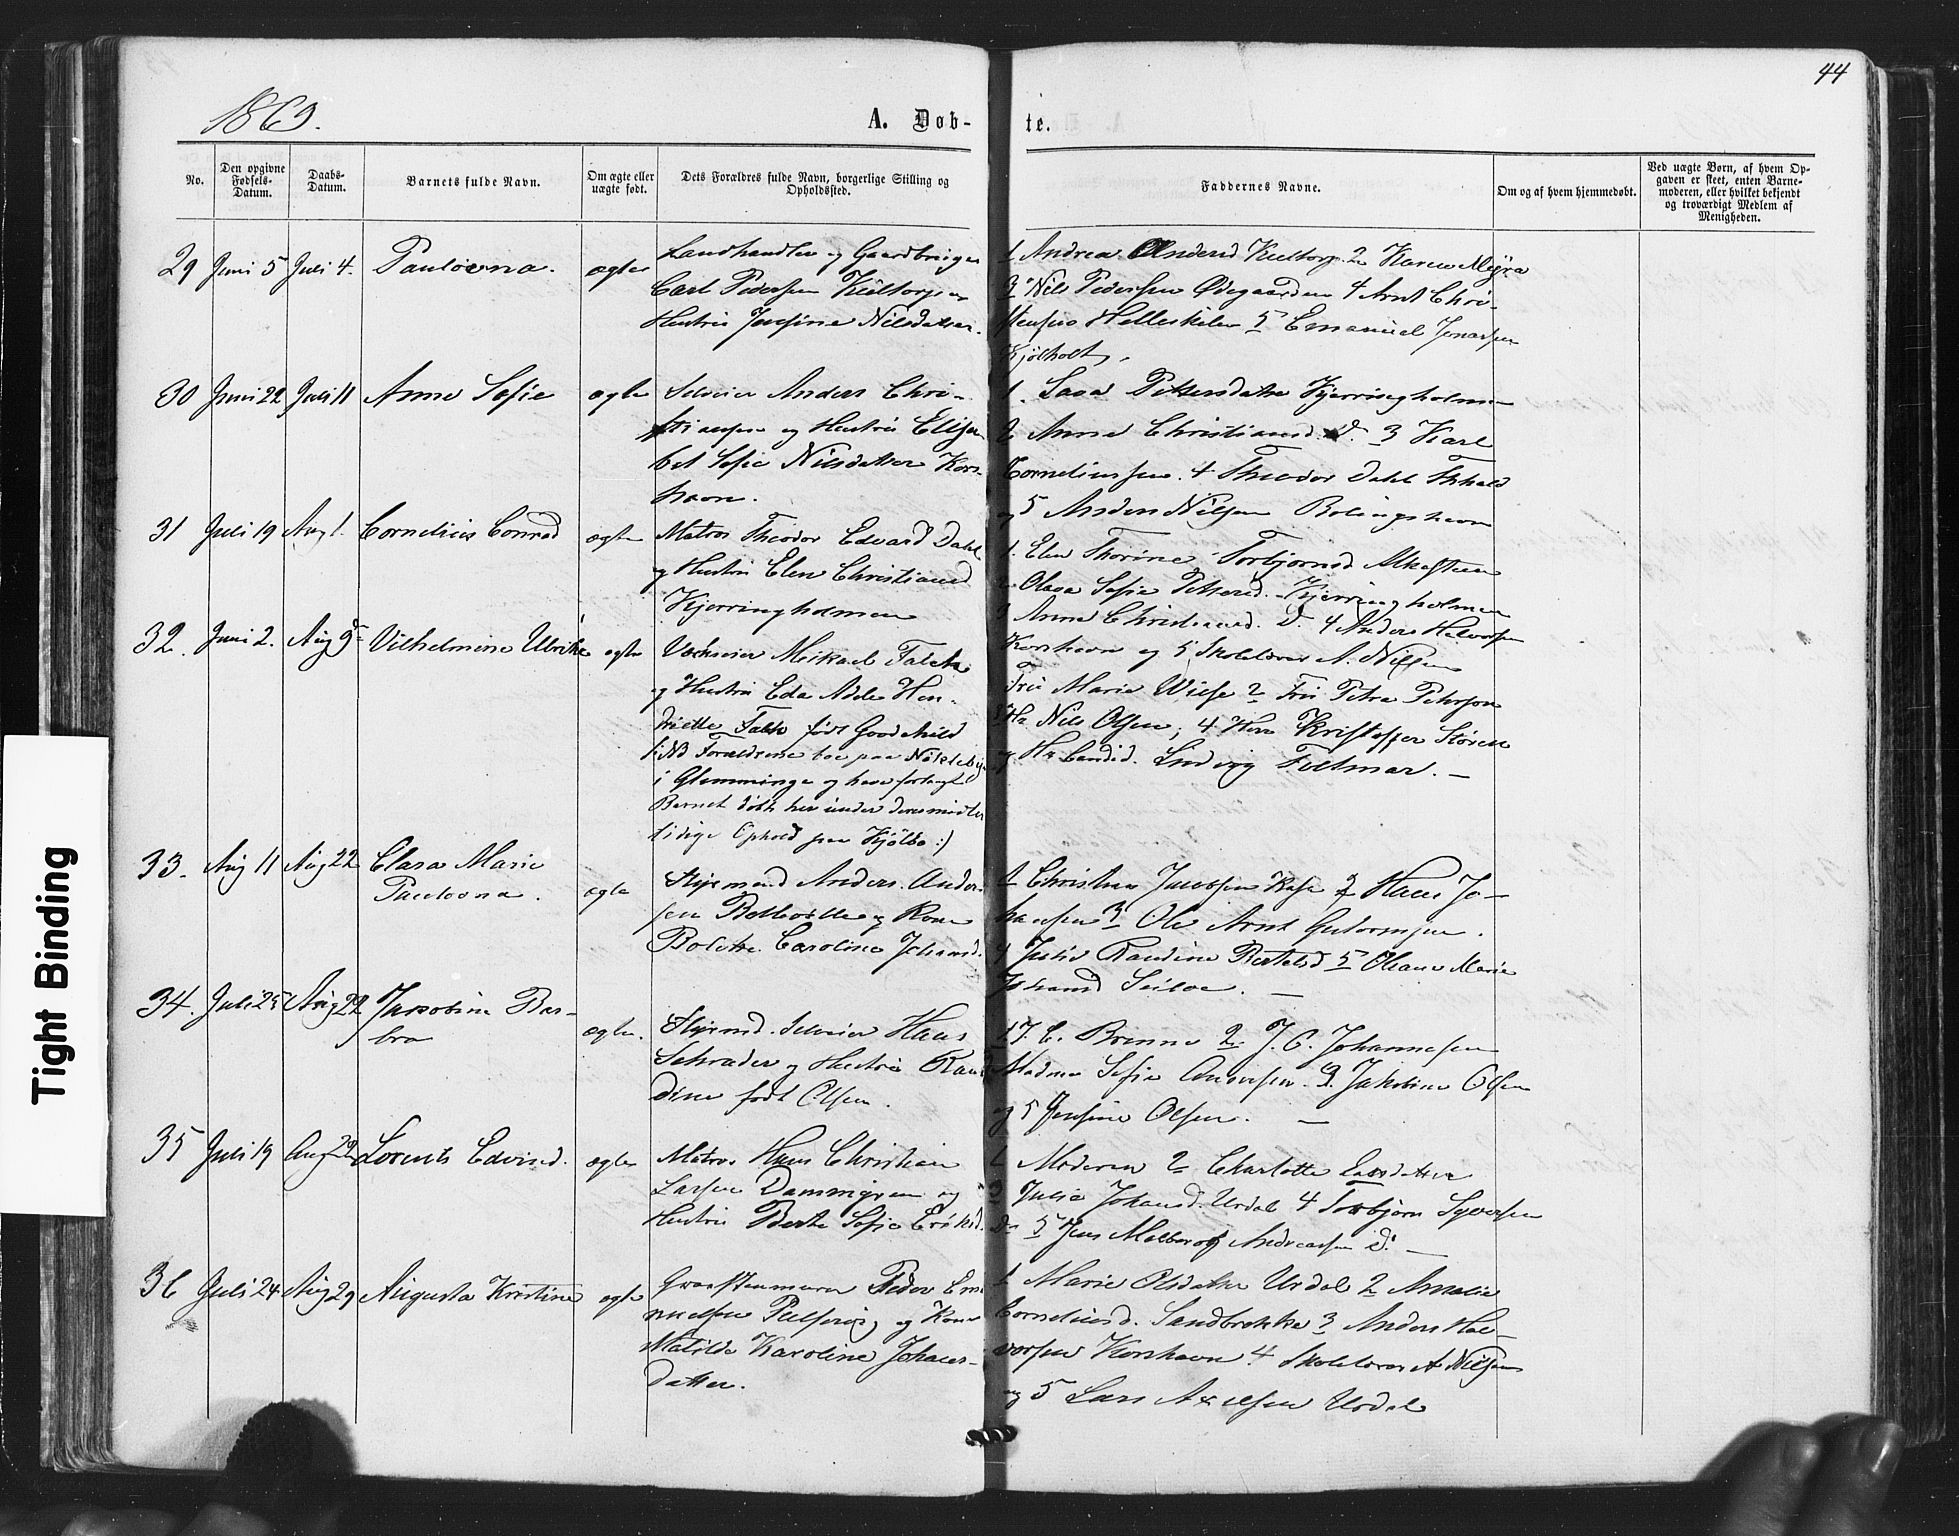 44
1869.
A. Døb-
te.
No.
Den opgivne Fødsels-Datum.
Daabs-Datum.
Barnets fulde Navn.
Om ægte eller uægte født.
Dets Forældres fulde Navn, borgerlige Stilling og Opholdssted.
Faddernes Navne.
Om og af hvem hjemmedøbt.
Ved uægte Børn, af hvem Op-
gaven er skeet, enten Barne-
moderen, eller hvilket bekjendt
og troværdigt Medlem af
Menigheden.
29 Juni 5 Juli 4. Paulovna. ægte
Landhandler og Gaardbruger
Carl Pedersen
Hustru Josefine Nilsdatter.
1 Andrea 2 Karen
3 Nils Pedersen Ødegaarden 4 Arnt Chri-
stensen 5 Emanuel Jonassen
Kjølholt.
30 Juni 22 Juli 11 Anne Sofie ægte
Selveier Anders Chri-
stiansen og Hustru
bet Sofie Nilsdatter Kors-
havn.
1. Pettersdatter Kjerringholmen
2 Anna Christiansd. D. 3 Karl
Corneliussen. 4 Theodor Dahl
og 5 Anders Nilsen
31 Juli 19 Aug 1. Cornelius Conrad ægte
Matros Theodor Edvard Dahl
og Hustru Elen Christiansd
Kjerringholmen
1. Elen Thorine Torbjørnsd
2 Olava Sofie Pettersd. Kjerringholmen
3 Anna Christiansd. D. 4 Anders Halvorsen
Korshavn og 5 Skolelærer A. Nilsen
32. Juni 2. Aug 9 Vilhelmine Ulrikke ægte
Mikael Falck
og Hustru Eda Adele Hen-
driette Falck født Goodchild
(: NB Forældrene boe paa
i Glemminge og have forlangt
Barnet døbt her under deres midler
tidige Ophold paa Kjölbo :)
Fru Marie Wiese 2 Fru Petra Peterson
3 Hr Nils Olsen, 4. Herr Kristoffer Støren
og Hr Candid. Ludvig
33. Aug 11 Aug 22 Clara Marie
Paulovna. ægte
Styrmand Anders Ander-
sen og Kone
Bolette Caroline Johansd.
1 Christian Jacobsen 2 Hans Jo-
hansen 3 Ole Arnt Guttormsen.
4 Randine Bertelsd 5 Oleane Marie
Johansd
34. Juli 25 Aug 22 Jakobine Bar-
bra ægte.
Styrmd. Selveier Hans
Schrader og Hustru Ran-
dine født Olsen.
2. J. C. Johannesen
Madme Sofie 3. Jakobine Olsen
og 5 Josefine Olsen.
35 Juli 19 Aug 29 Lorents Edvind. ægte
Matros Hans Christian
Larsen Dammyren og
Hustru Berte Sofie
1 Moderen 2 Charlotte Larsdatter
3 Julie Johansd. Urdal 4 Torbjørn Syversen
Do 5 Jens Andreassen D.
36 Juli 24 Aug 29 Augusta Kristine ægte
Peder Em-
og Kone
Matilde Karoline Johans-
datter.
1 Marie Olsdatter Urdal 2 Amalie
Corneliusd. Sandbrekke 3 Anders Hal-
vorsen Korshavn 4 Skolelærer A Nilsen
og 5 Lars Axelsen Urdal
Tight Binding